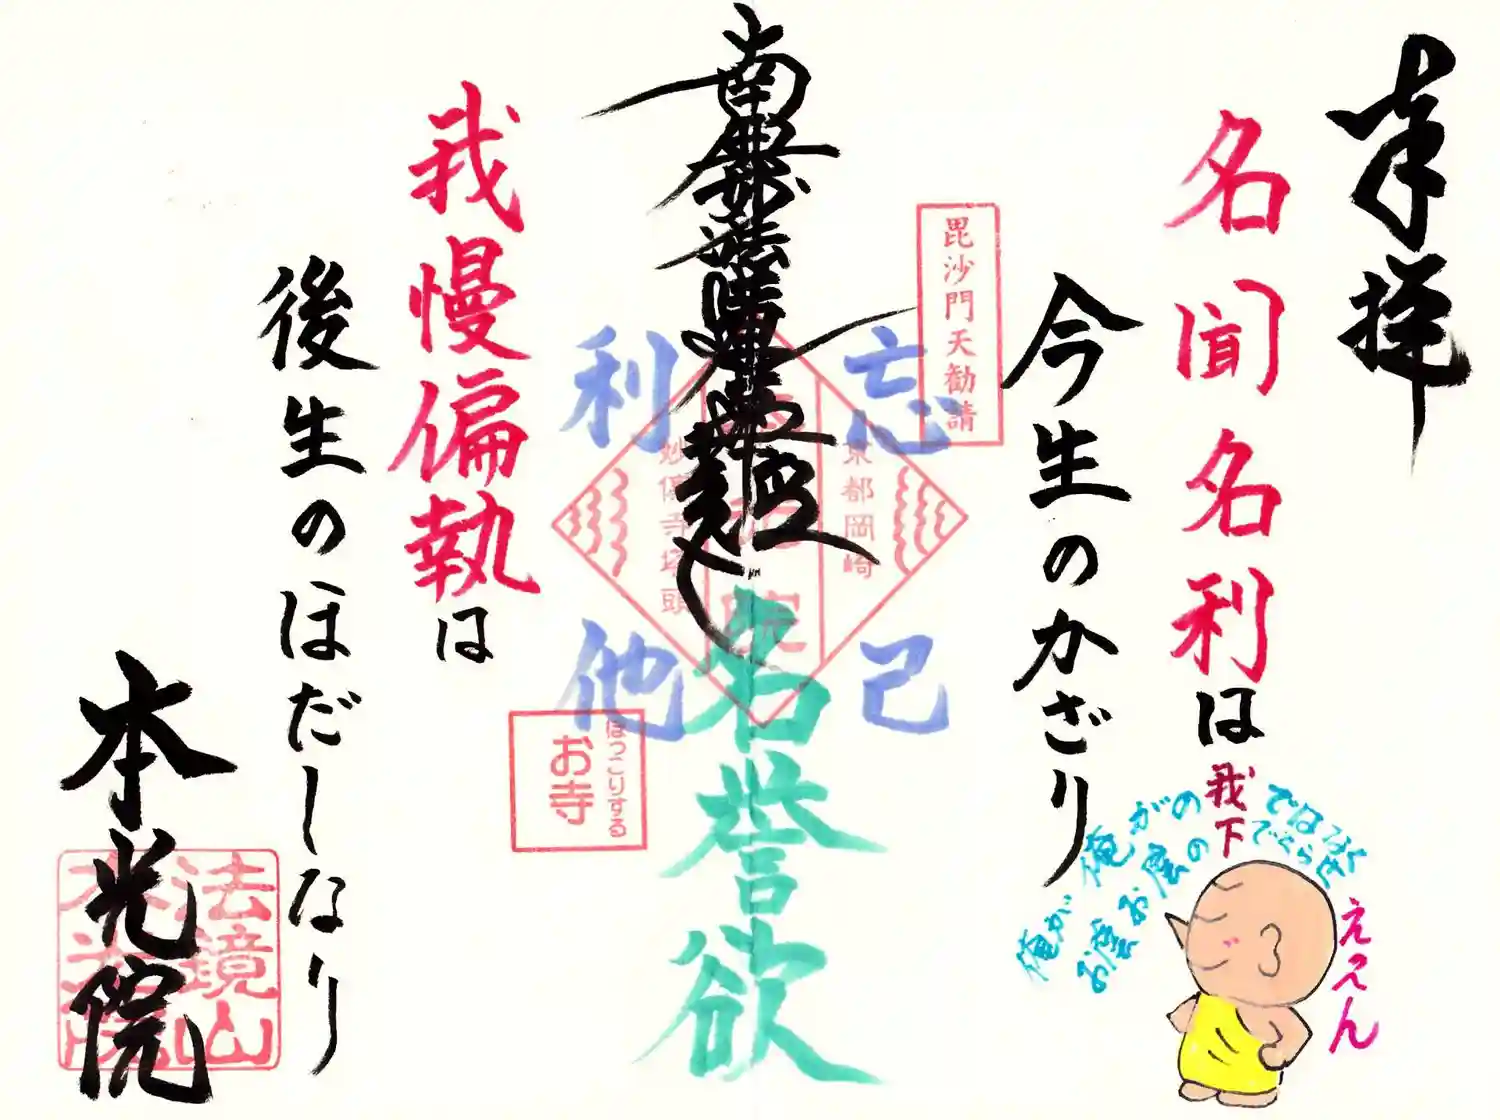 奉拝
名聞名利は
今生のかざり
毘沙門天勧請
南無妙法蓮華経
忘己
利他
名誉欲
京都岡崎
妙傳寺塔頭
我慢偏執は
後生のほだしなり
ほっこりする
お寺
本光院
法鏡山
本光院
俺が俺がの我
お蔭お蔭の下で
ええん